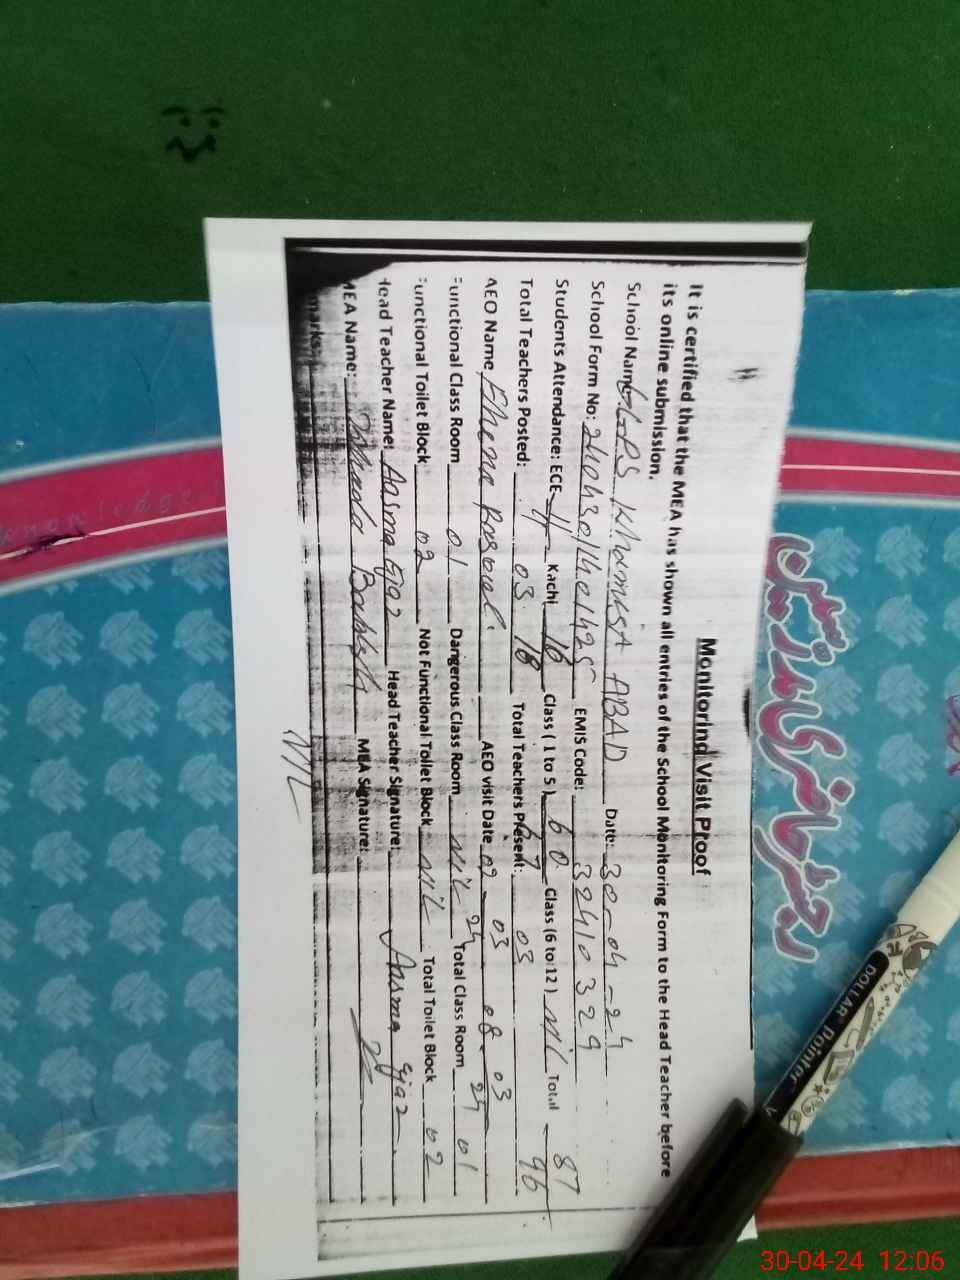 رجسٹر حاضری
Monitorind Visit Proof
It is certified that the MEA has shown all entries of the School Monitoring Form to the Head Teacher before
its online submission.
School Name GGPS Khamest ABAD Date: 30-04-24
School Form No: EMIS Code: 32410329
Students Attendance: ECE 11 Kachi 16 Class ( 1 to 5 ) 60 Class (6 to 12 ) Nil Total 87
18 67 96
Total Teachers Posted: 03 Total Teachers Present: 03
AEO Name AEO visit Date 07-03-24 08-03-24
Functional Class Room 01 Dangerous Class Room Nil Total Class Room 01
Functional Toilet Block 02 Not Functional Toilet Block Nil Total Toilet Block 02
Head Teacher Name: Aasma Ejaz Head Teacher Signature: Aasma Ejaz
MEA Name: MEA Signature:
marks:
NIL
DOLLAR Pointer
30-04-24 12:06